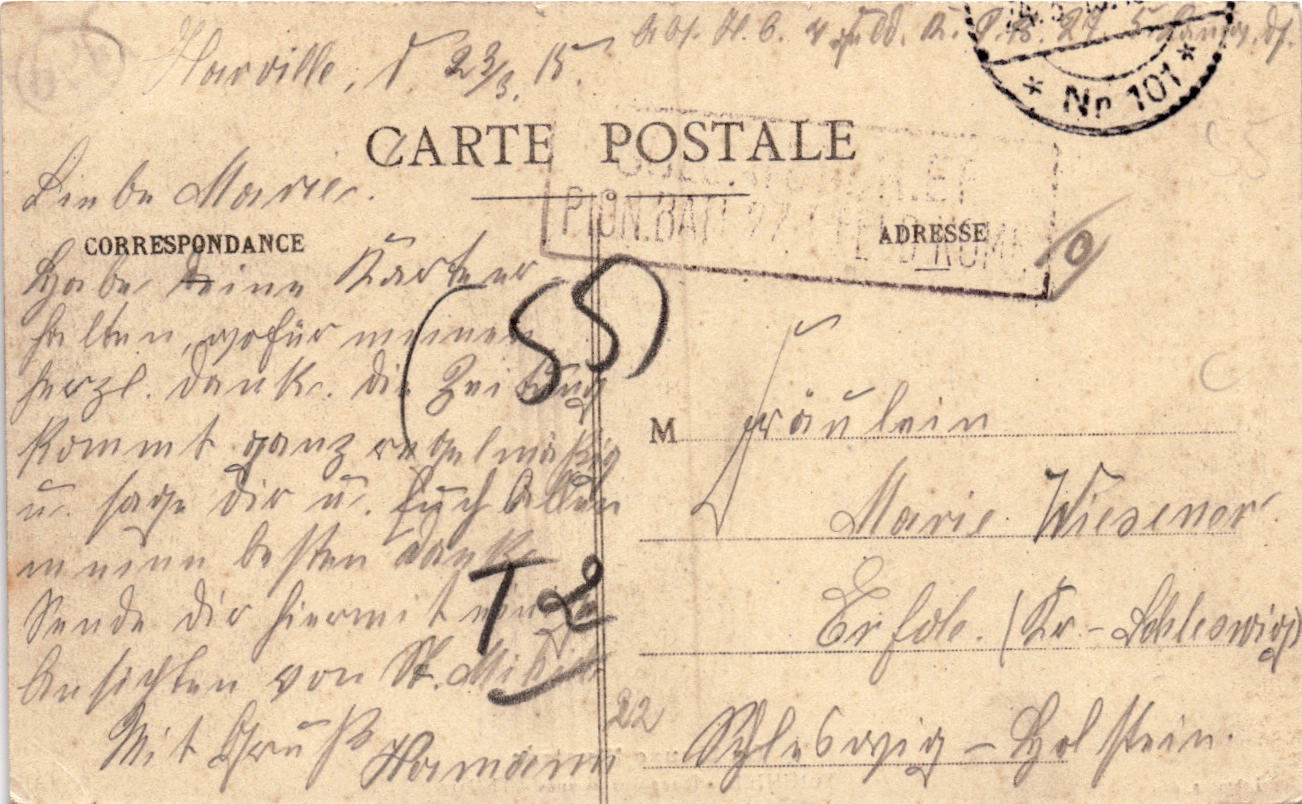 Harville, d. 23/3. 15.
Nr. 101
CARTE POSTALE
Liebe Marie.
CORRESPONDANCE
ADRESSE
PION. BATL 27
Habe deine Karte er-
halten, wofür meinen
herzl. Dank. Die Zeitung
kommt ganz regelmäßig
u. sage dir u. Euch Allen
meinen besten Dank.
Sende dir hiermit
Ansichten von St. Mihiel
Mit Gruß
Hamann
(55)
T 2
22
M Fräulein
Marie Wiesener.
Erfde. (Kr. - Schleswig)
Schleswig - Holstein.